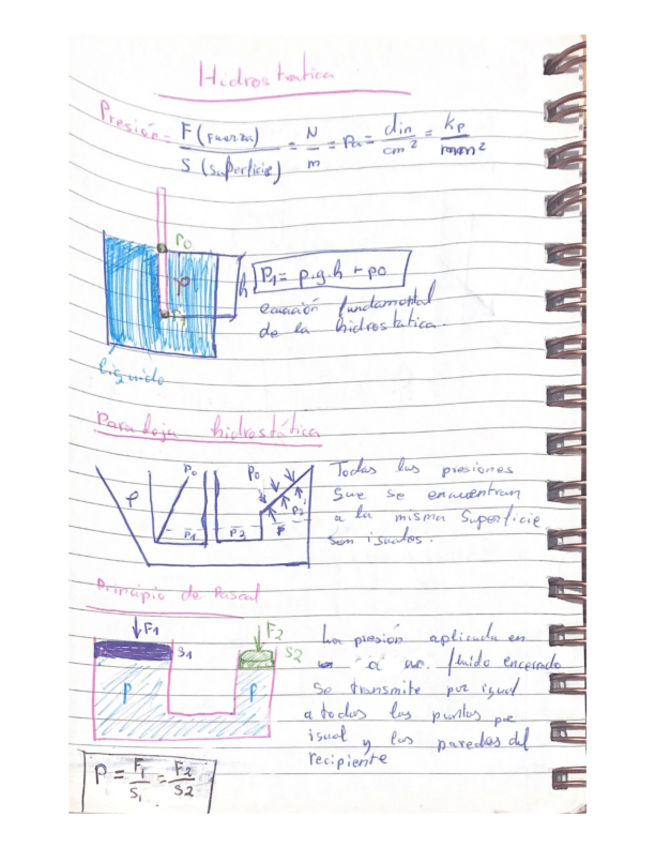 Hidrostatica
Presión = F (Fuerza) / S (superficie) = N / m = Pa = din / cm² = kp / mm²
P0
P1 = ρ.g.h + po
h
ρ
P1
ecuación fundamental
de la hidrostatica.
liquido
Paradoja hidrostática
ρ P0 P0 Todas las presiones
que se encuentran
P1 P2 P P2 a la misma Superficie
son iguales.
Principio de Pascal
F1 F2 La presión aplicada en
S1 S2 a un fluido encerrado
P P se transmite por igual
a todos los puntos por
igual y las paredes del
recipiente
P = F1 / S1 = F2 / S2